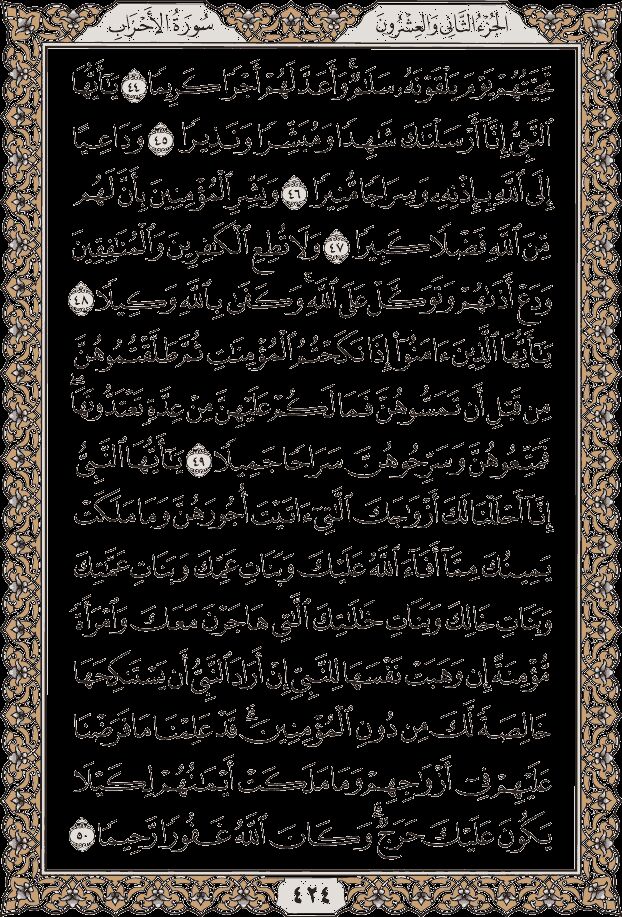 الجزء الثاني والعشرون
سورة الأحزاب
تَحِيَّتُهُمْ يَوْمَ يَلْقَوْنَهُۥ سَلَٰمٌۚ وَأَعَدَّ لَهُمْ أَجْرًا كَرِيمًا ٤٤ يَٰٓأَيُّهَا
ٱلنَّبِىُّ إِنَّآ أَرْسَلْنَٰكَ شَٰهِدًا وَمُبَشِّرًا وَنَذِيرًا ٤٥ وَدَاعِيًا
إِلَى ٱللَّهِ بِإِذْنِهِۦ وَسِرَاجًا مُّنِيرًا ٤٦ وَبَشِّرِ ٱلْمُؤْمِنِينَ بِأَنَّ لَهُم
مِّنَ ٱللَّهِ فَضْلًا كَبِيرًا ٤٧ وَلَا تُطِعِ ٱلْكَٰفِرِينَ وَٱلْمُنَٰفِقِينَ
وَدَعْ أَذَىٰهُمْ وَتَوَكَّلْ عَلَى ٱللَّهِۚ وَكَفَىٰ بِٱللَّهِ وَكِيلًا ٤٨
يَٰٓأَيُّهَا ٱلَّذِينَ ءَامَنُوٓا۟ إِذَا نَكَحْتُمُ ٱلْمُؤْمِنَٰتِ ثُمَّ طَلَّقْتُمُوهُنَّ
مِن قَبْلِ أَن تَمَسُّوهُنَّ فَمَا لَكُمْ عَلَيْهِنَّ مِنْ عِدَّةٍ تَعْتَدُّونَهَاۖ
فَمَتِّعُوهُنَّ وَسَرِّحُوهُنَّ سَرَاحًا جَمِيلًا ٤٩ يَٰٓأَيُّهَا ٱلنَّبِىُّ
إِنَّآ أَحْلَلْنَا لَكَ أَزْوَٰجَكَ ٱلَّٰتِىٓ ءَاتَيْتَ أُجُورَهُنَّ وَمَا مَلَكَتْ
يَمِينُكَ مِمَّآ أَفَآءَ ٱللَّهُ عَلَيْكَ وَبَنَاتِ عَمِّكَ وَبَنَاتِ عَمَّٰتِكَ
وَبَنَاتِ خَالِكَ وَبَنَاتِ خَٰلَٰتِكَ ٱلَّٰتِى هَاجَرْنَ مَعَكَ وَٱمْرَأَةً
مُّؤْمِنَةً إِن وَهَبَتْ نَفْسَهَا لِلنَّبِىِّ إِنْ أَرَادَ ٱلنَّبِىُّ أَن يَسْتَنكِحَهَا
خَالِصَةً لَّكَ مِن دُونِ ٱلْمُؤْمِنِينَۗ قَدْ عَلِمْنَا مَا فَرَضْنَا
عَلَيْهِمْ فِىٓ أَزْوَٰجِهِمْ وَمَا مَلَكَتْ أَيْمَٰنُهُمْ لِكَيْلَا
يَكُونَ عَلَيْكَ حَرَجٌۗ وَكَانَ ٱللَّهُ غَفُورًا رَّحِيمًا ٥٠
٤٢٤